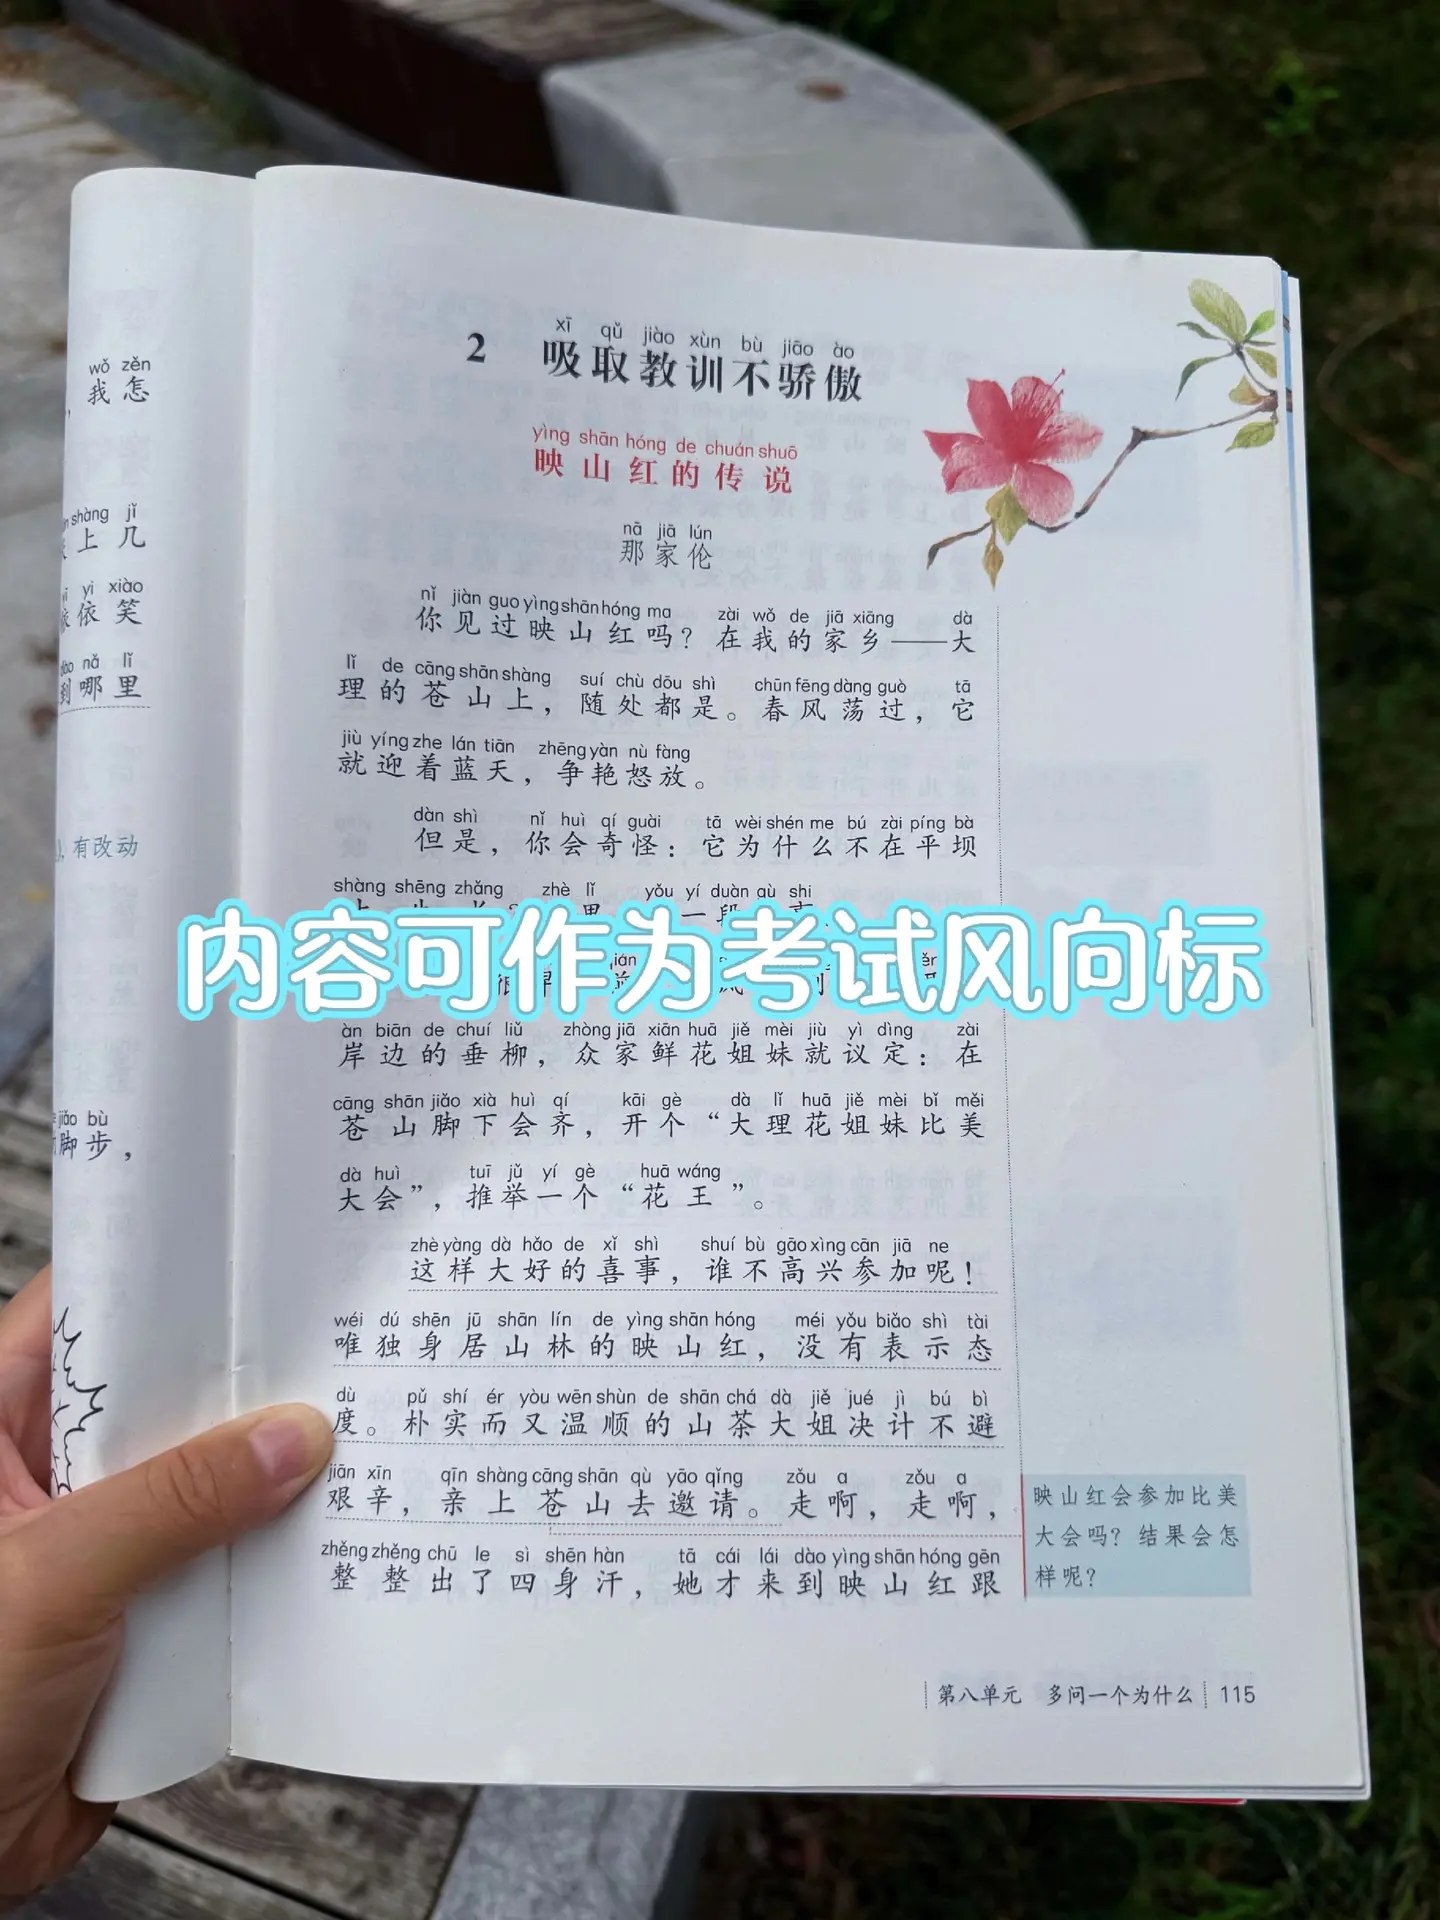 xī qǔ jiào xùn bù jiāo ào
2 吸取教训不骄傲
yìng shān hóng de chuán shuō
映山红的传说
nā jiā lún
那家伦
nǐ jiàn guo yìng shān hóng ma zài wǒ de jiā xiāng dà
你见过映山红吗？在我的家乡——大
lǐ de cāng shān shàng suí chù dōu shì chūn fēng dàng guò tā
理的苍山上，随处都是。春风荡过，它
jiù yíng zhe lán tiān zhēng yàn nù fàng
就迎着蓝天，争艳怒放。
dàn shì nǐ huì qí guài tā wèi shén me bú zài píng bà
但是，你会奇怪：它为什么不在平坝
shàng shēng zhǎng zhè lǐ yǒu yí duàn gù shi
内容可作为考试风向标
àn biān de chuí liǔ zhòng jiā xiān huā jiě mèi jiù yì dìng zài
岸边的垂柳，众家鲜花姐妹就议定：在
cāng shān jiǎo xià huì qí kāi gè dà lǐ huā jiě mèi bǐ měi
苍山脚下会齐，开个“大理花姐妹比美
dà huì tuī jǔ yí gè huā wáng
大会”，推举一个“花王”。
zhè yàng dà hǎo de xǐ shì shuí bù gāo xìng cān jiā ne
这样大好的喜事，谁不高兴参加呢！
wéi dú shēn jū shān lín de yìng shān hóng méi yǒu biǎo shì tài
唯独身居山林的映山红，没有表示态
dù pǔ shí ér yòu wēn shùn de shān chá dà jiě jué jì bú bì
度。朴实而又温顺的山茶大姐决计不避
jiān xīn qīn shàng cāng shān qù yāo qǐng zǒu a zǒu a
艰辛，亲上苍山去邀请。走啊，走啊，
zhěng zhěng chū le sì shēn hàn tā cái lái dào yìng shān hóng gēn
整整出了四身汗，她才来到映山红跟
映山红会参加比美
大会吗？结果会怎
样呢？
第八单元 多问一个为什么 115
wǒ zěn
，我怎
shàng jǐ
上几
yi xiào
依笑
nǎ lǐ
到哪里
，有改动
jiǎo bù
脚步，